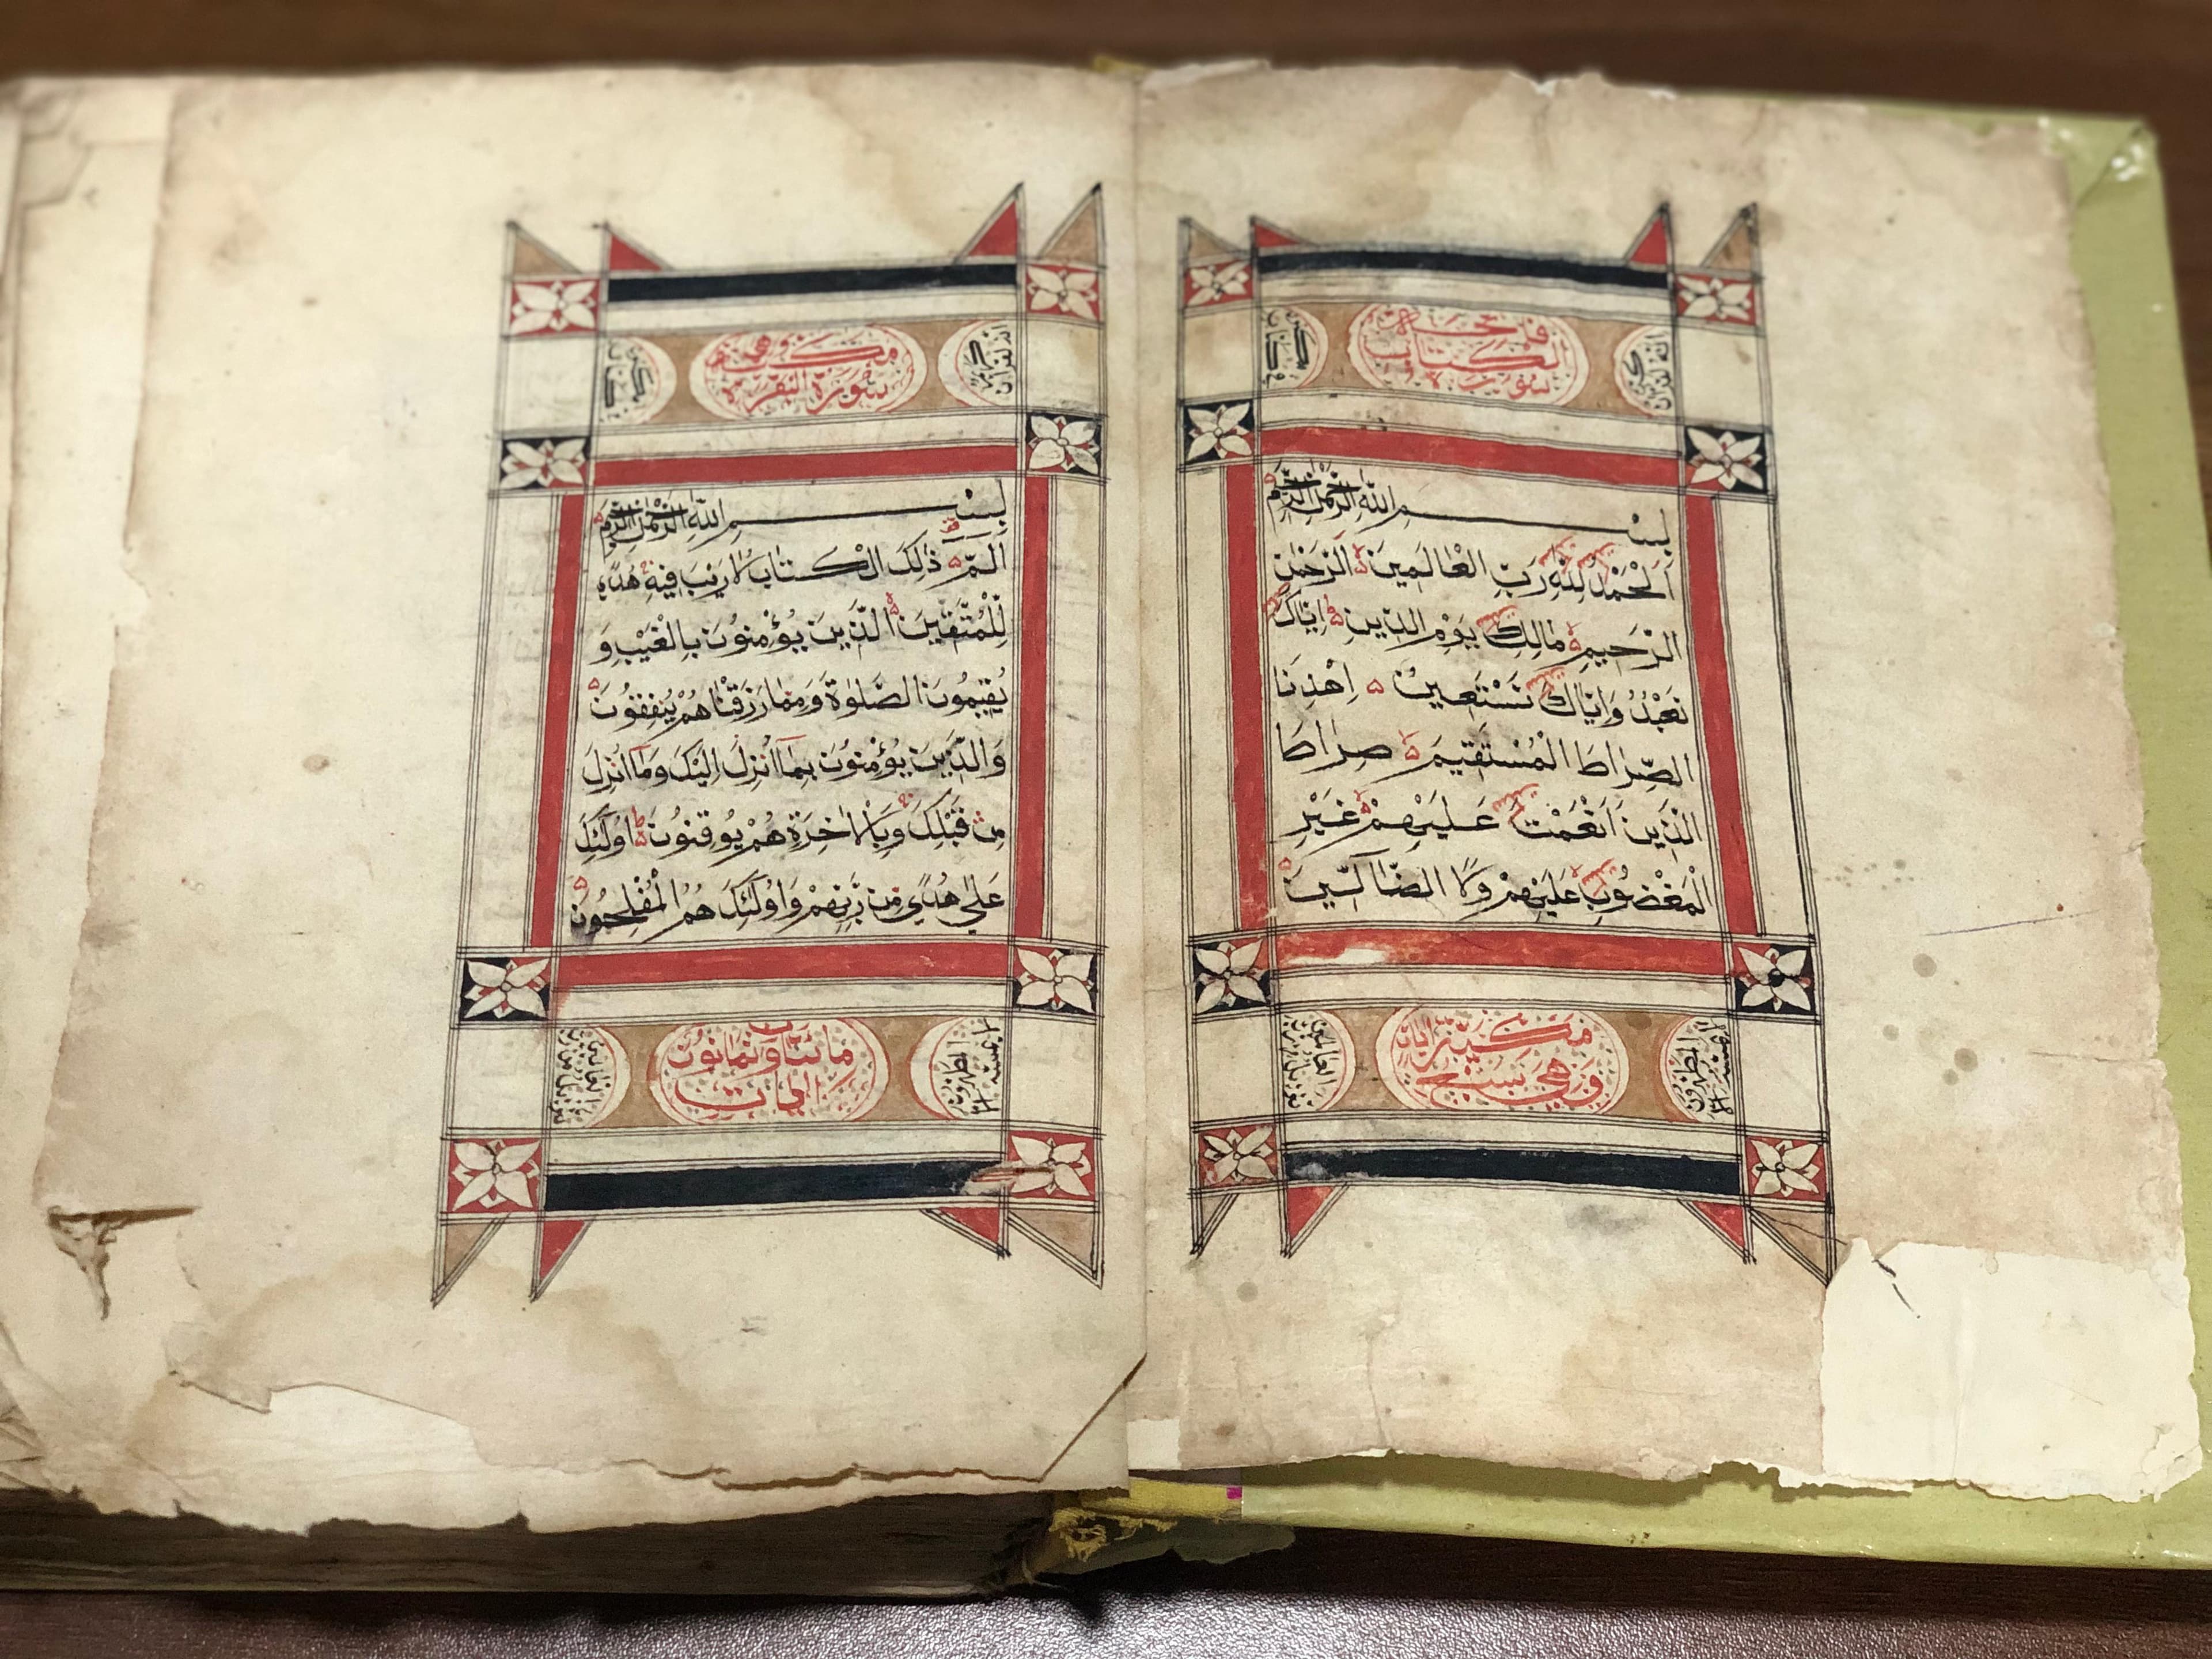 سورة
الكتاب
فاتحة
بســـم الله الرحمن الرحيم
اَلْحَمْدُ لِلّٰهِ رَبِّ الْعٰالَمِينَ اَلرَّحْمٰنِ
الرَّحِيمِ مٰالِكِ يَوْمِ الدِّينِ اِيّٰاكَ
نَعْبُدُ وَاِيّٰاكَ نَسْتَعِينُ اِهْدِنَا
الصِّرٰاطَ الْمُسْتَقِيمَ صِرٰاطَ
الَّذِينَ اَنْعَمْتَ عَلَيْهِمْ غَيْرِ
الْمَغْضُوبِ عَلَيْهِمْ وَلَا الضّٰالِّينَ
مكية
وهي سبع
ايات
المطهرون
العالمين
سورة البقرة
بســـم الله الرحمن الرحيم
الٓمّٓ ذٰلِكَ الْكِتٰابُ لَا رَيْبَ فِيهِ هُدًى
لِّلْمُتَّقِينَ الَّذِينَ يُؤْمِنُونَ بِالْغَيْبِ وَ
يُقِيمُونَ الصَّلٰوةَ وَمِمّٰا رَزَقْنٰاهُمْ يُنْفِقُونَ
وَالَّذِينَ يُؤْمِنُونَ بِمَآ اُنْزِلَ اِلَيْكَ وَمَآ اُنْزِلَ
مِنْ قَبْلِكَ وَبِالْاٰخِرَةِ هُمْ يُوقِنُونَ اُولٰئِكَ
عَلٰى هُدًى مِّنْ رَّبِّهِمْ وَاُولٰئِكَ هُمُ الْمُفْلِحُونَ
مائتا وثمانون
المطهرون